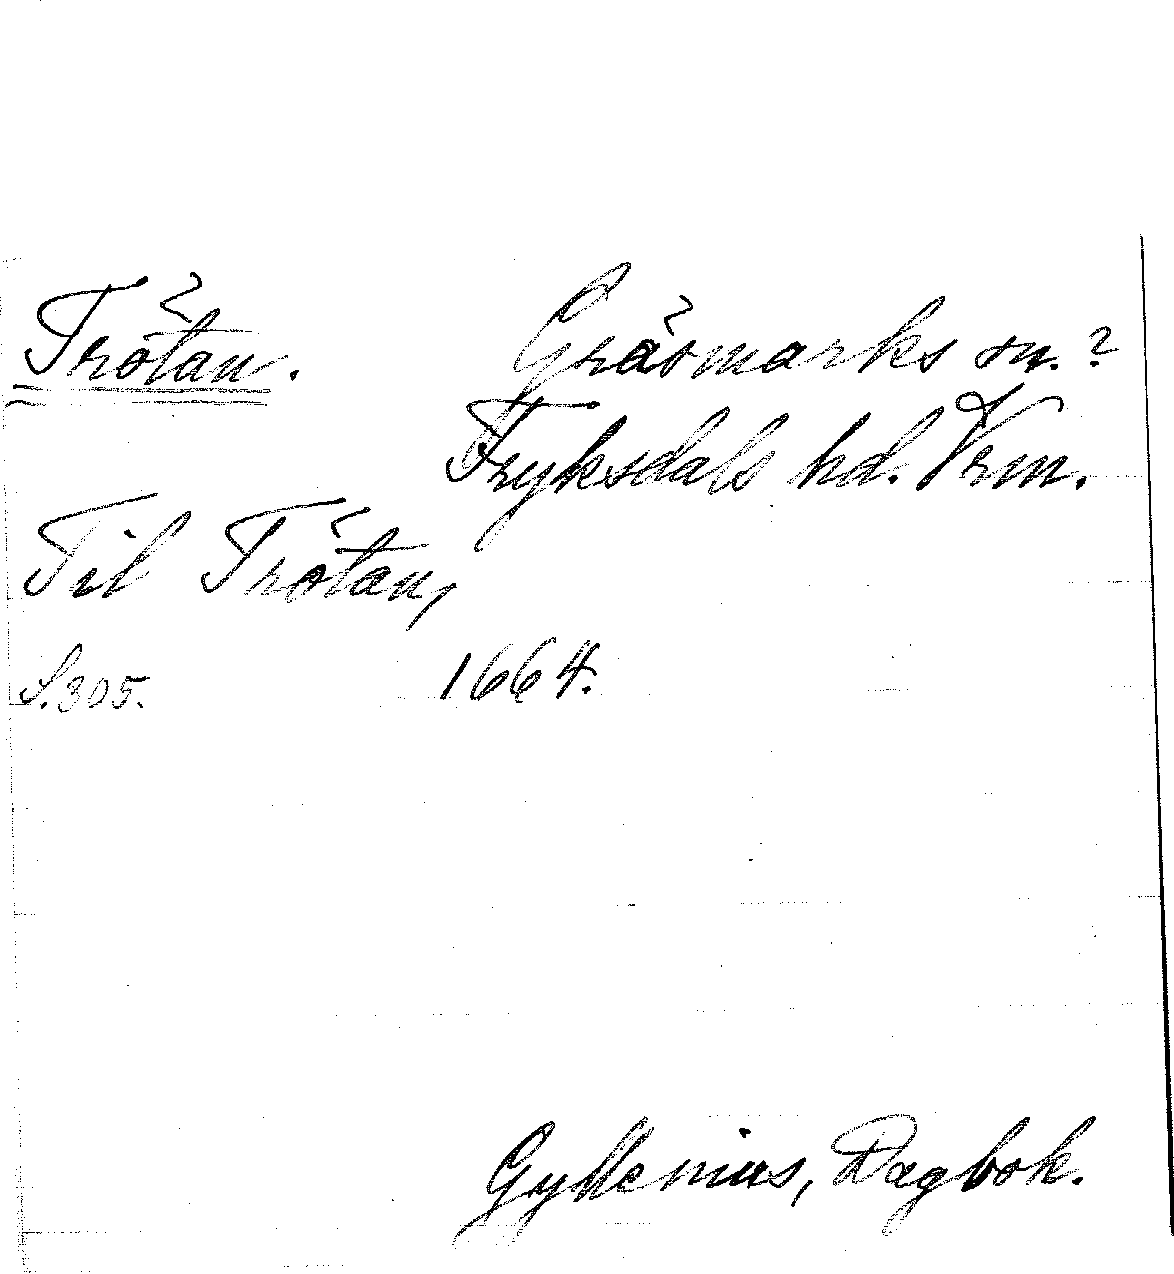 Trötan. Gräsmarks sn.?
Fryksdals hd. Vrm.
Til Trötan,
S. 305. 1664.
Gyllenius, Dagbok.